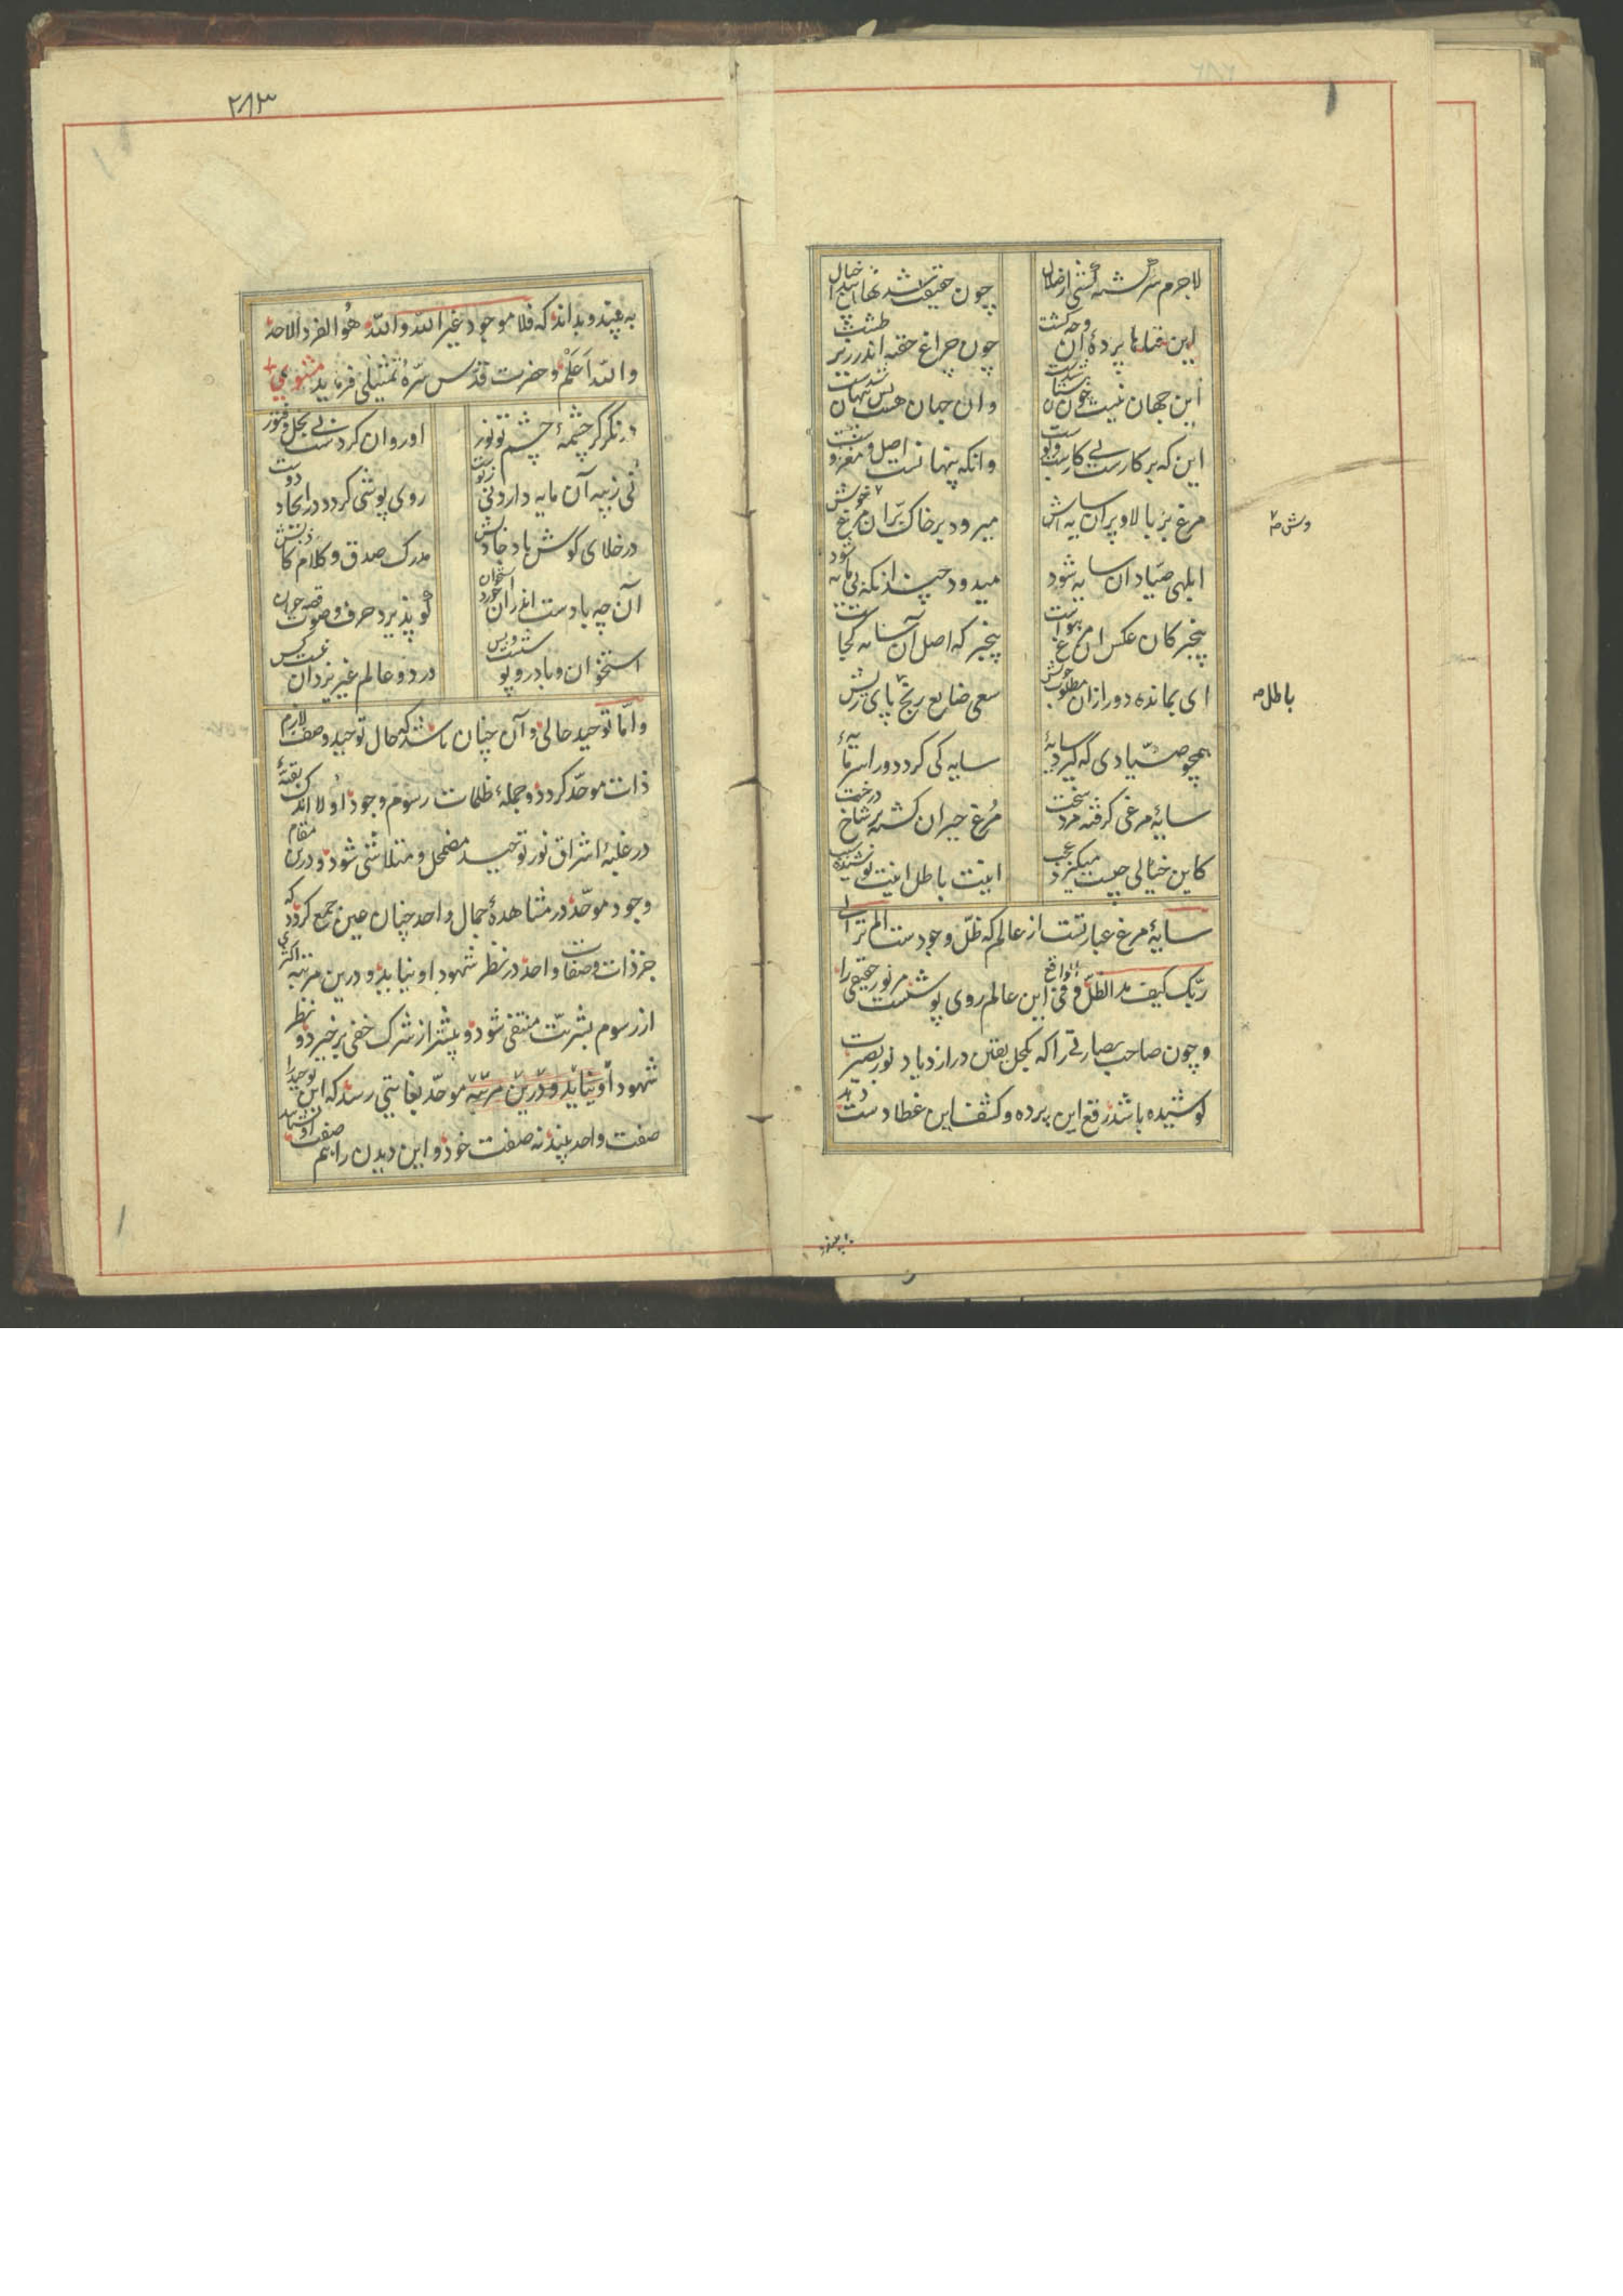 لاجرم سرگشته گشتی از ضلال
چون حقیقت شد نهان پیدا خیال
این فناها پردهٔ آن وجه گشت
چون چراغ خفیه اندر زیر طشت
این جهان نیست چون هستان شدست
وان جهان هست بس پنهان شدست
این که بر کارست بی کارست و پوست
وانکه پنهانست اصل و مغز اوست
مرغ بر بالا و پران سایه اش
میرود بر خاک پرّان مرغ وش
ابلهی صیّاد آن سایه شود
میدود چندانکه بی مایه شود
بیخبر کان عکس آن مرغ هواست
بیخبر که اصل آن سایه کجاست
ای بمانده دور از آن مطلوب خویش
سعی ضایع رنج باطل پای ریش
همچو صیّادی که گیرد سایهٔ
سایه کی گردد ورا سرمایهٔ
سایهٔ مرغی گرفته مرد سخت
مرغ حیران گشته بر شاخ درخت
کاین خیالی چیست میگیرد عجب
اینت باطل اینت پوشیده سبب
سایهٔ مرغ عبارتست از عالم که ظلّ وجودست الم تر الی
ربّک کیف مد الظلّ و فی الواقع این عالم روی پوشست مر نور حقیقی را
و چون صاحب بصارتی را که بکحل یقین در ازدیاد نور بصیرت
کوشیده باشد رفع این پرده و کشف این غطا دست دهد
وش صح
باطل صح
۲۸۳
به بیند و بداند که فلا موجود غیر الله والله هو الفرد الاحد
والله اَعْلَم و حضرت قدّس سرّه تمثیلی فرماید مثنوی
در نگر گر چشمهٔ چشم تو نور
او روان کردست بی بخل و فتور
نی ز پیه آن مایه دارد نی ز پوست
روی پوشی کرد در ایجاد دوست
در خلای گوش باد جاذبش
مدرک صدق و کلام کاذبش
آن چه بادست اندر آن خرد استخوان
کو پذیرد حرف و صوت قصه خوان
استخوان و باد روپوشست و بس
در دو عالم غیر یزدان نیست کس
و امّا توحید حالی و آن چنان باشد که حال توحید وصف لازم
ذات موحّد گردد و جملهٔ ظلمات رسوم وجود او الا اندک بقیهٔ
در غلبهٔ اشراق نور توحید مضمحل و متلاشی شود و درین مقام
وجود موحّد در مشاهدهٔ جمال واحد چنان عین جمع گردد که
جز ذات و صفات واحد در نظر شهود او نیاید و درین مرتبه اکثری
از رسوم بشریّت منتفی شود و بیشتر از شرک خفی برخیزد و نظر
شهود او نیاید و درین مرتبه موحّد بغایتی رسد که این توحید را
صفت واحد بیند نه صفت خود و این دیدن را هم صفت او شناسد